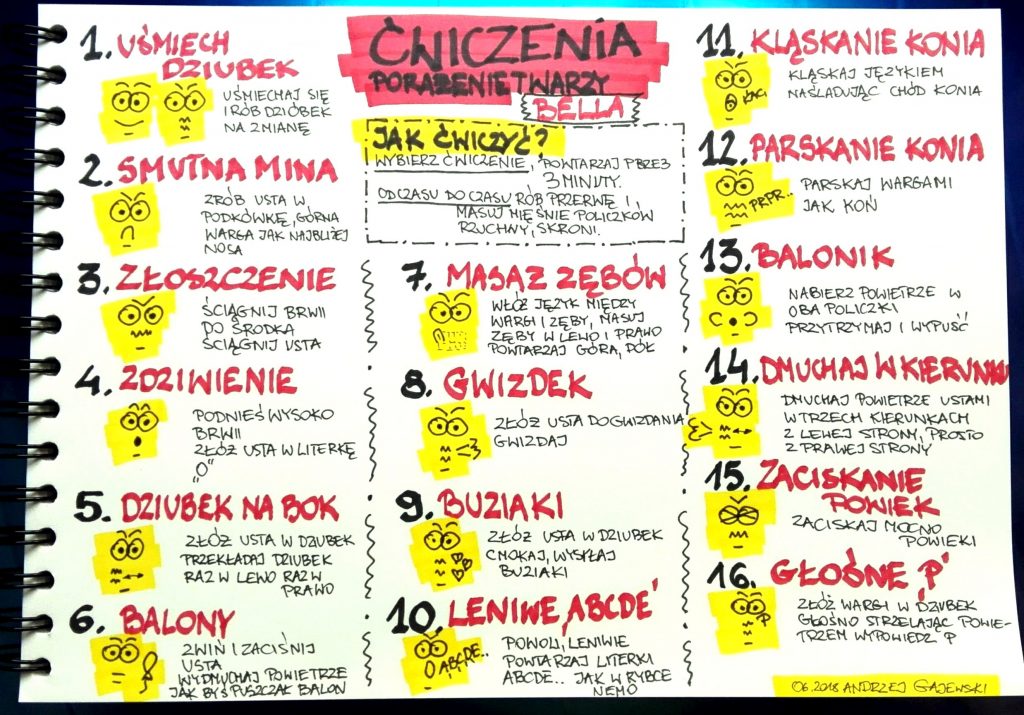 ĆWICZENIA
PORAŻENIE TWARZY
BELLA
JAK ĆWICZYĆ?
WYBIERZ ĆWICZENIE, POWTARZAJ PRZEZ
3 MINUTY.
OD CZASU DO CZASU RÓB PRZERWĘ I,
MASUJ MIĘŚNIE POLICZKÓW
RZUCHWY, SKRONI.
1. UŚMIECH
DZIUBEK
UŚMIECHAJ SIĘ
I RÓB DZIÓBEK
NA ZMIANĘ
2. SMUTNA MINA
ZRÓB USTA W
PODKÓWKĘ, GÓRNA
WARGA JAK NAJBLIŻEJ
NOSA
3. ZŁOSZCZENIE
ŚCIĄGNIJ BRWII
DO ŚRODKA
ŚCIĄGNIJ USTA
4. ZDZIWIENIE
PODNIEŚ WYSOKO
BRWII
ZŁÓŻ USTA W LITERKĘ
„O"
5. DZIUBEK NA BOK
ZŁÓŻ USTA W DZIUBEK
PRZEKŁADAJ DZIUBEK
RAZ W LEWO RAZ W
PRAWO
6. BALONY
ZWIŃ I ZACIŚNIJ
USTA
WYDMUCHAJ POWIETRZE
JAK BYŚ PUSZCZAŁ BALON
7. MASAŻ ZĘBÓW
WŁÓŻ JĘZYK MIĘDZY
WARGI I ZĘBY, MASUJ
ZĘBY W LEWO I PRAWO
POWTARZAJ GÓRA, DÓŁ
8. GWIZDEK
ZŁÓŻ USTA DO GWIZDANIA
GWIZDAJ
9. BUZIAKI
ZŁÓŻ USTA W DZIUBEK
CMOKAJ, WYSYŁAJ
BUZIAKI
10. LENIWE „ABCDE"
ABCDE..
POWOLI, LENIWIE
POWTARZAJ LITERKI
ABCDE.. JAK W RYBCE
NEMO
11. KLĄSKANIE KONIA
KLĄSKAJ JĘZYKIEM
NAŚLADUJĄC CHÓD KONIA
12. PARSKANIE KONIA
PRPR..
PARSKAJ WARGAMI
JAK KOŃ
13. BALONIK
NABIERZ POWIETRZE W
OBA POLICZKI
PRZYTRZYMAJ I WYPUŚĆ
14. DMUCHAJ W KIERUNKU
DMUCHAJ POWIETRZE USTAMI
W TRZECH KIERUNKACH
Z LEWEJ STRONY, PROSTO
Z PRAWEJ STRONY
15. ZACISKANIE
POWIEK
ZACISKAJ MOCNO
POWIEKI
16. GŁOŚNE „P"
P
ZŁÓŻ WARGI W DZIUBEK
GŁOŚNO STRZELAJĄC POWIE-
TRZEM WYPOWIEDZ „P
06.2018 ANDRZEJ GAJEWSKI